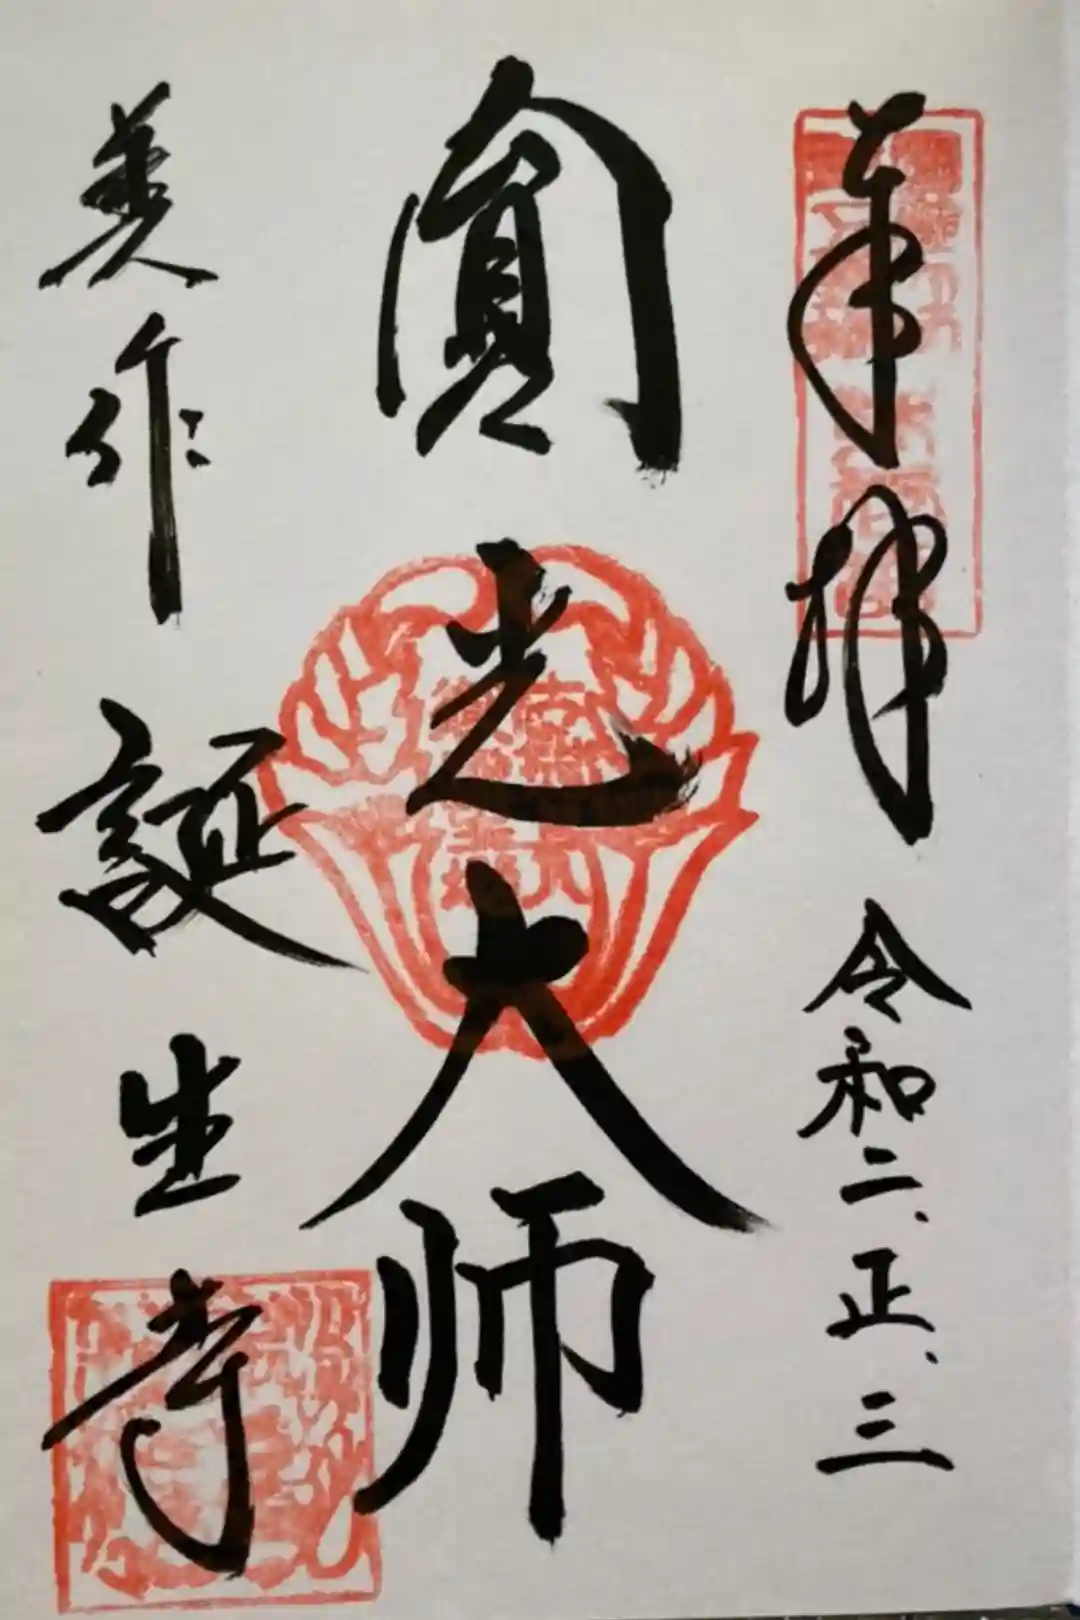 奉拝 令和二、正、三
圓光大师
美作 誕生寺